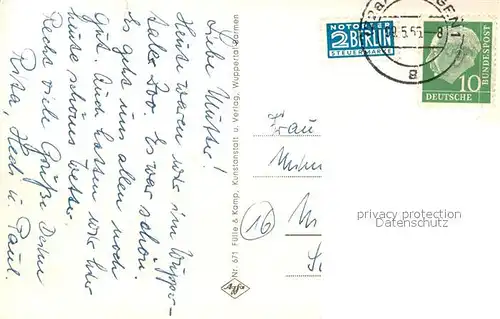 Liebe Mutter!
Heute waren wir im Wupper-
taler Zoo. Es war schön.
Es geht uns allen noch
gut. Auch hatten wir hier
heute schönes Wetter.
Recht viele Grüße Deine
Rita, Hedi u. Paul.
Nr. 671 Fülle & Kamp, Kunstanstalt u. Verlag, Wuppertal-Barmen
Agfa
NOTOPFER
2 BERLIN
STEUERMARKE
GEN 1
.5.55. - 8
a
DEUTSCHE
BUNDESPOST
10
Frau
16
privacy protection
Datenschutz